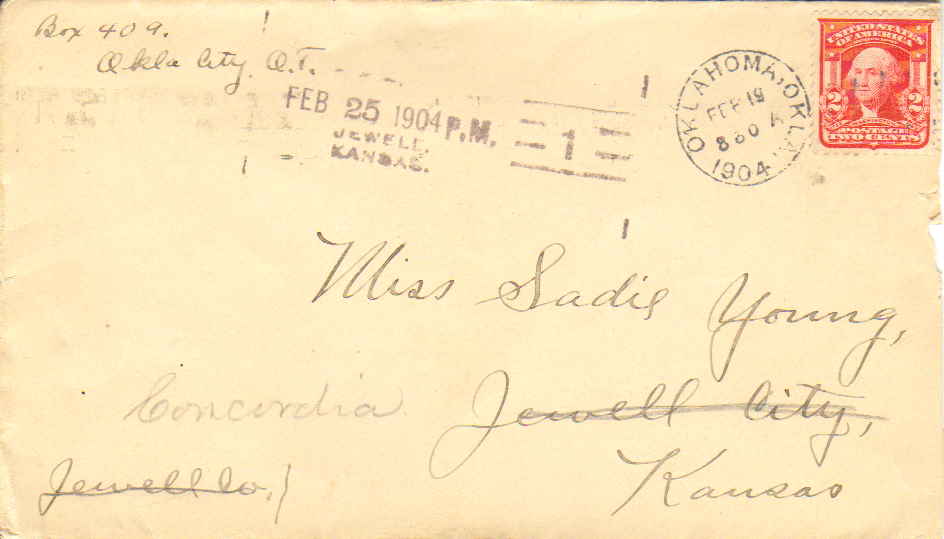 Box 409.
Okla City O.T.
FEB 25 1904 P.M.
JEWELL,
KANSAS.
1
OKLAHOMA, OKLA.
FEB 19
8 30 A
1904
UNITED STATES
OF AMERICA
2 2
POSTAGE
TWO CENTS
Miss Sadie Young,
Concordia Jewell City,
Jewell Co. Kansas